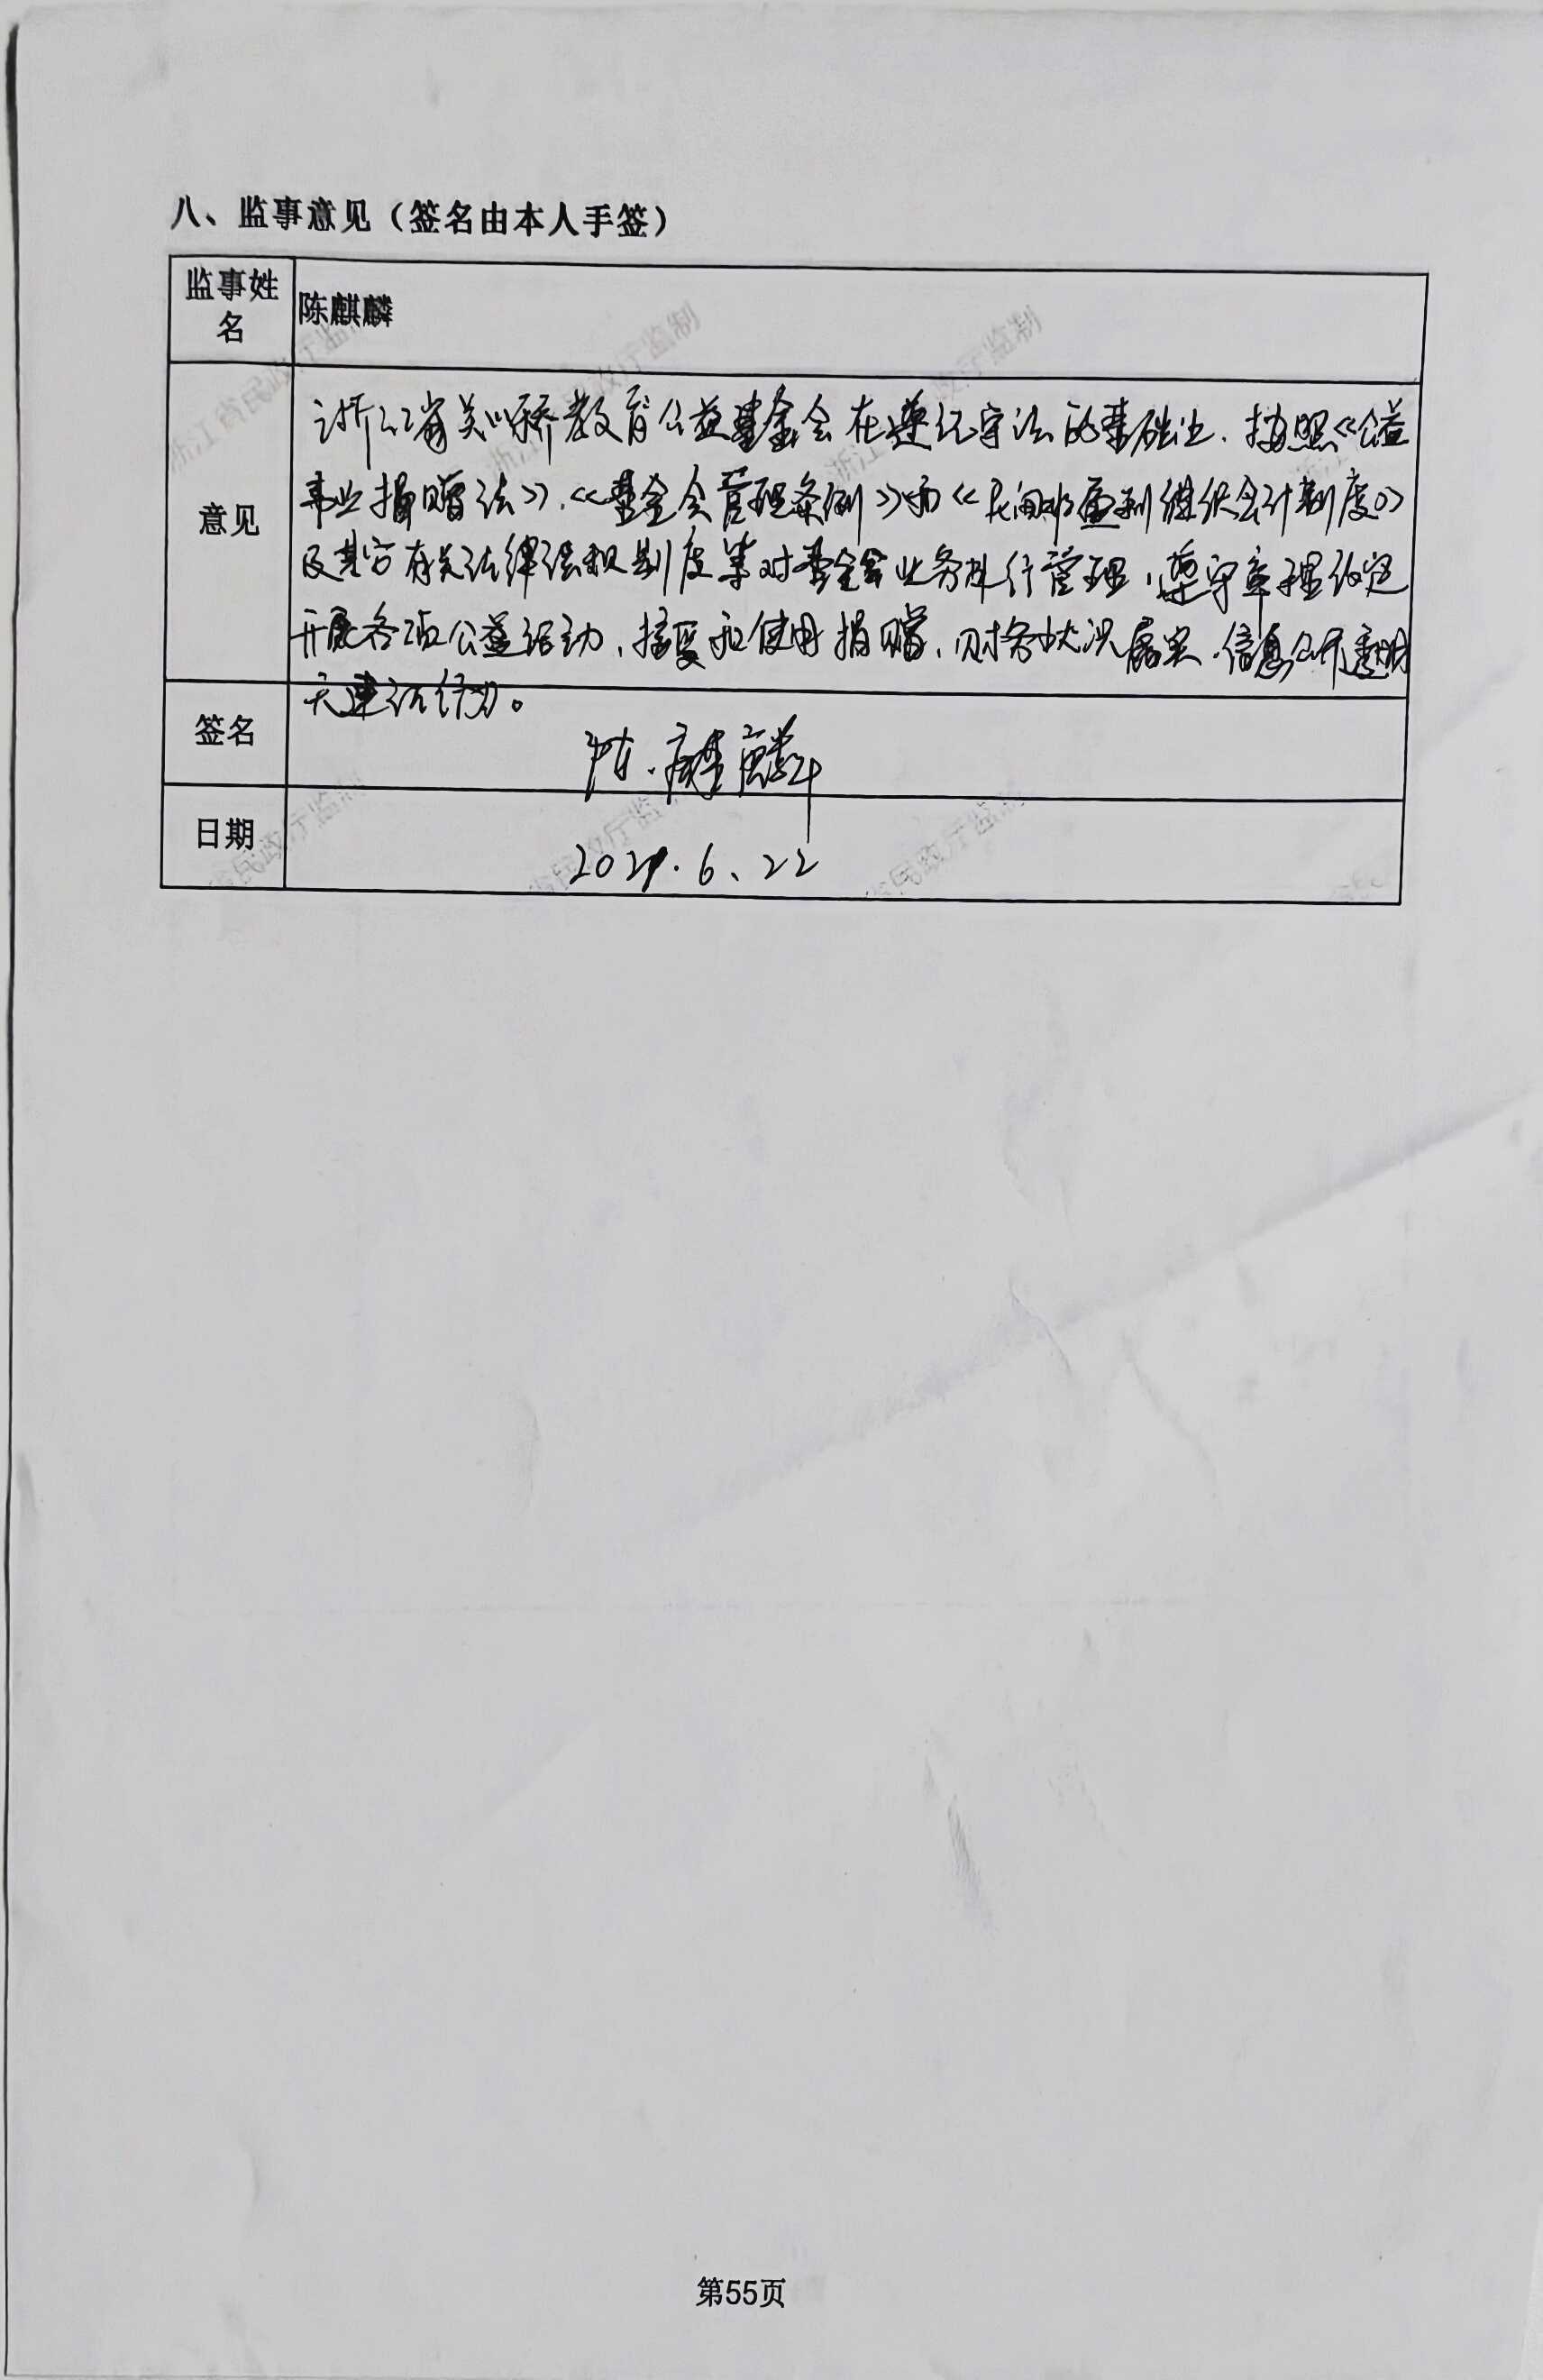 八、监事意见（签名由本人手签）
监事姓名
陈麒麟
意见
浙江省关心骄教育公益基金会在遵纪守法的基础上、按照《公益
事业捐赠法》、《基金会管理条例》和《民间非盈利组织会计制度》
及其它有关法律法规制度等对基金会业务进行管理，遵守章程约定
开展各项公益活动、接受和使用捐赠、财务状况属实、信息公开透明
无违法行为。
签名
陈麒麟
日期
2021.6、22
浙江省民政厅监制
第55页